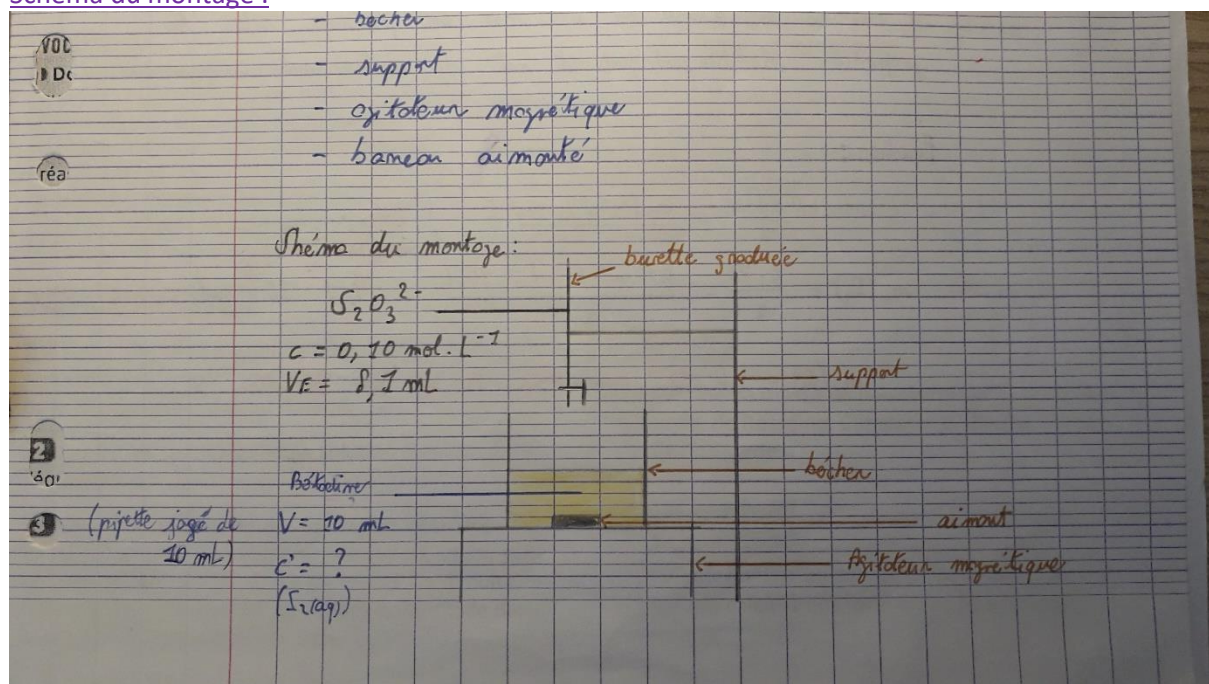 Schéma du montage :
- bécher
VOC
D Dc
- support
- agitateur magnétique
- barreau aimanté
réa
Shéma du montage :
burette graduée
S₂O₃²⁻
c = 0,10 mol.L⁻¹
VE = 8,1 mL
support
2
bécher
Bétadine
3
(pipette jogé de
10 mL)
V = 10 mL
aimant
C' = ?
Agitateur magnétique
(I₂(aq))